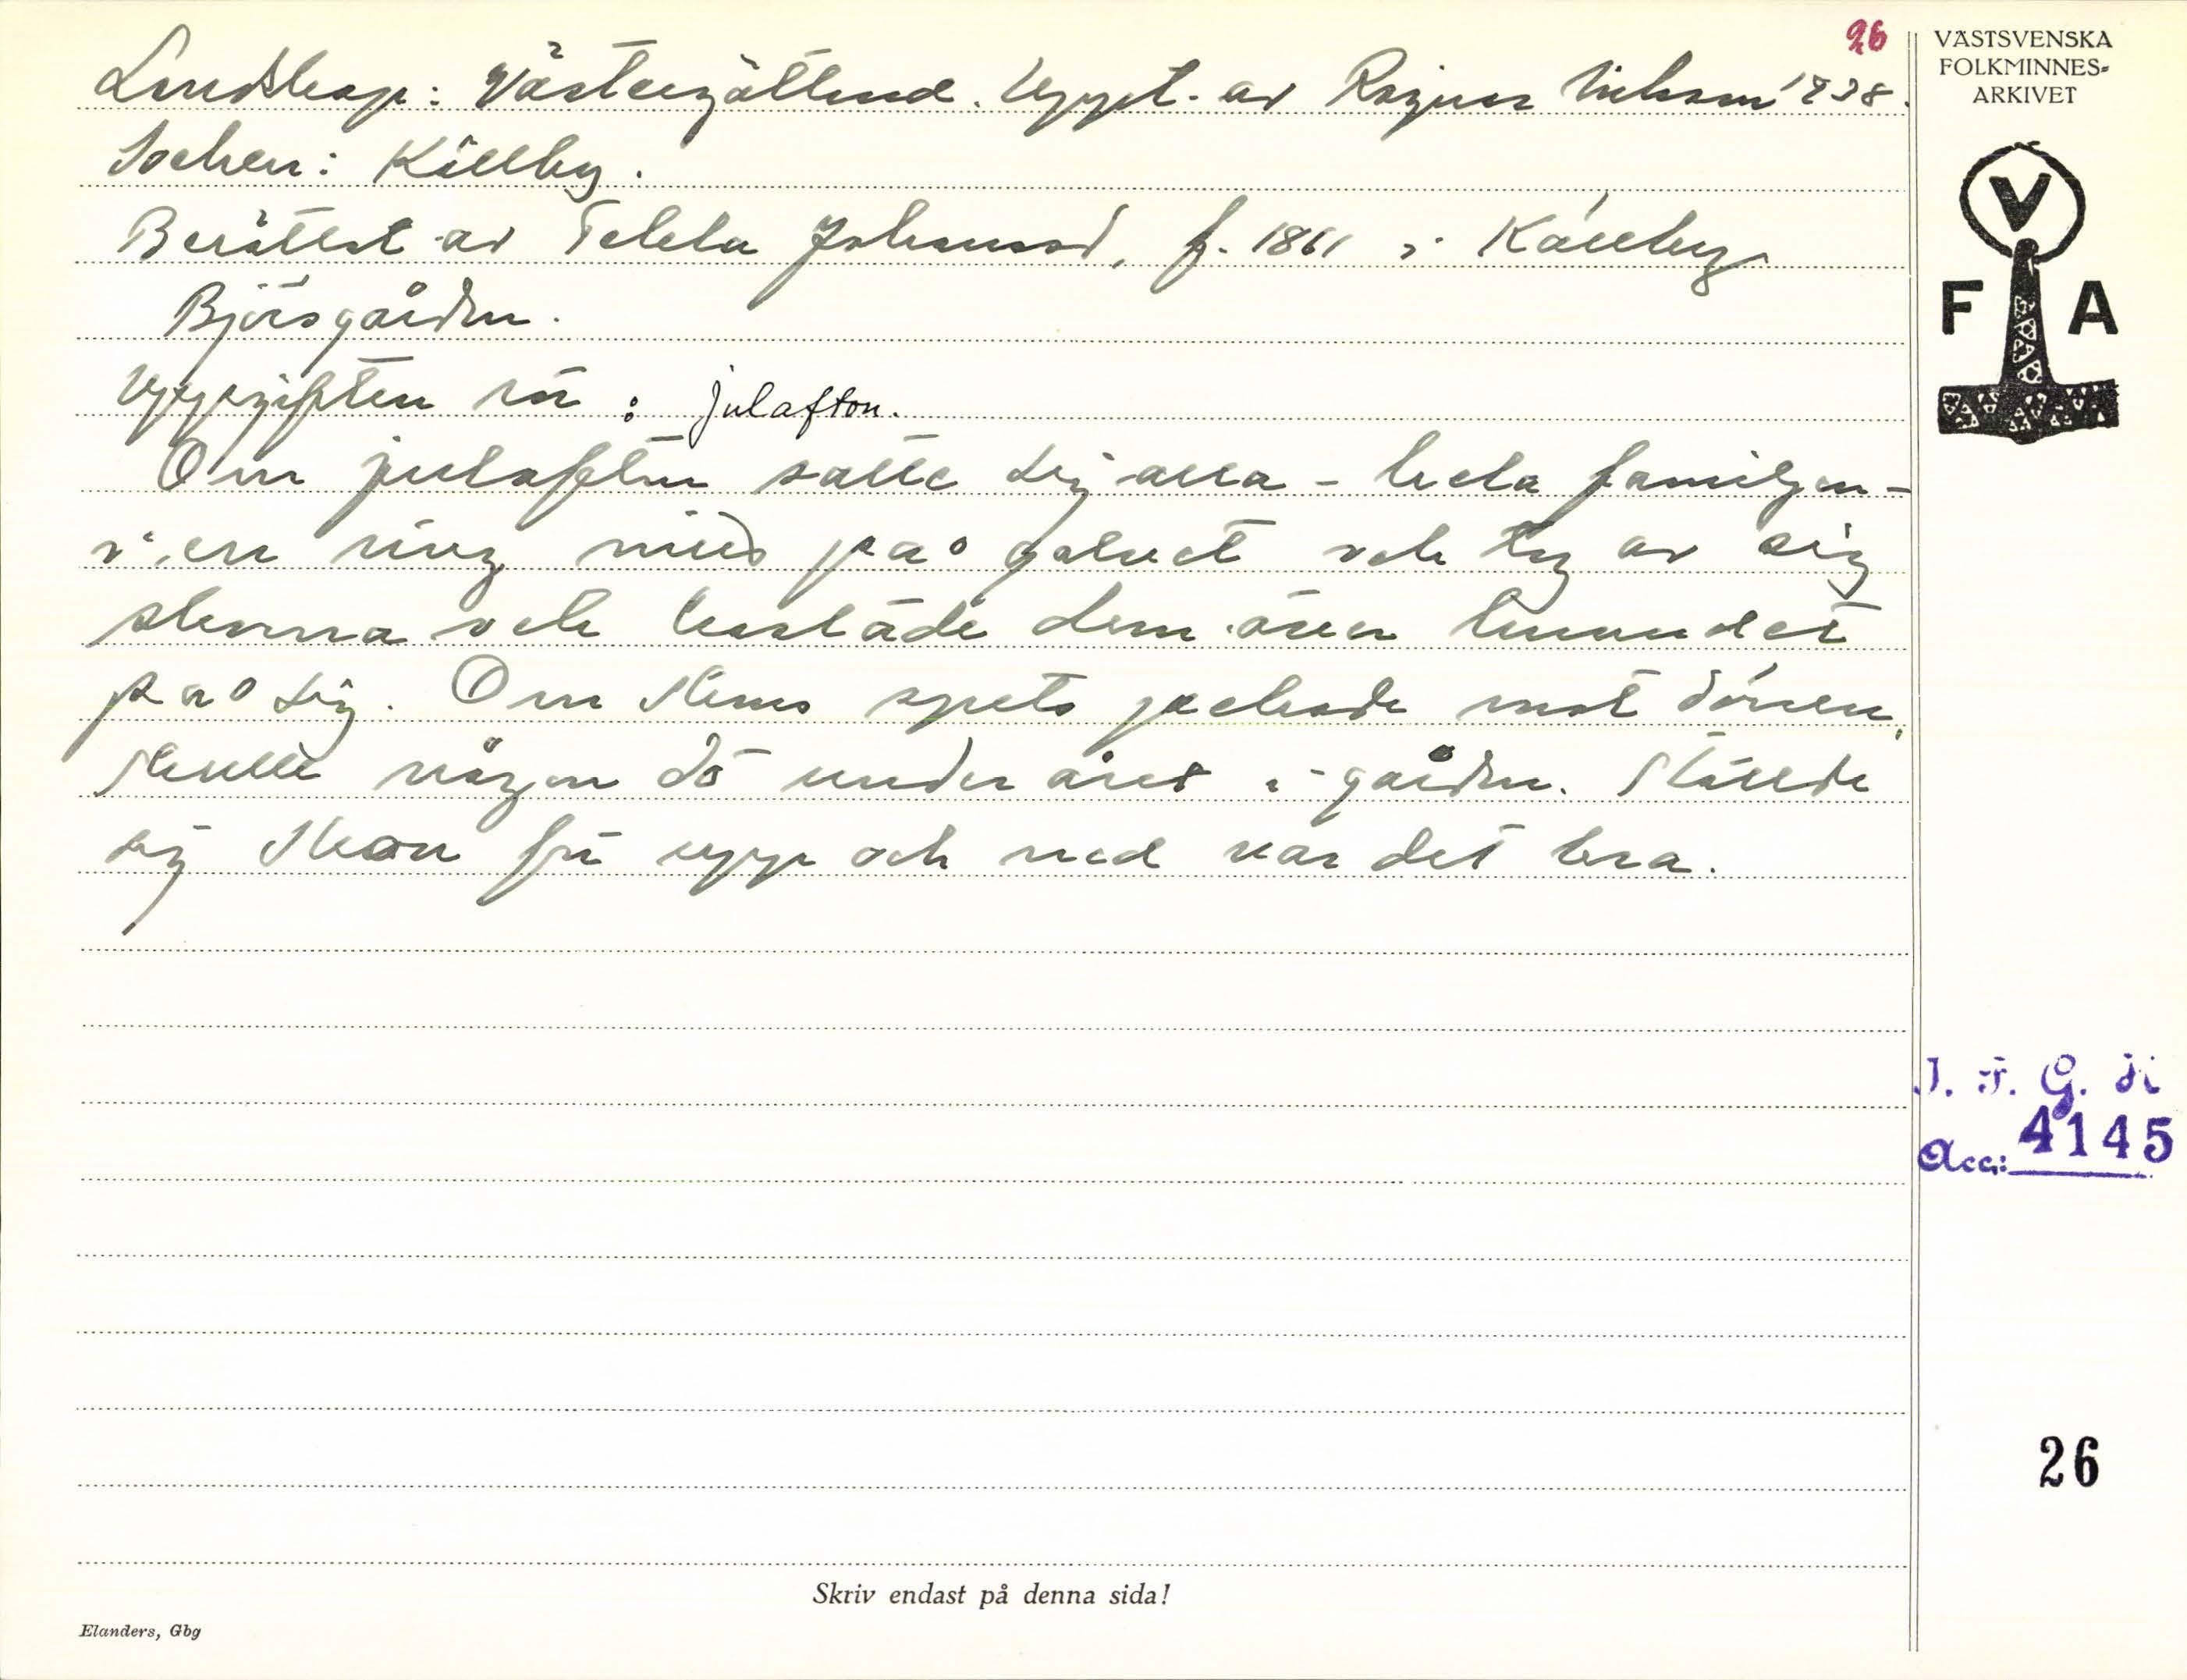 26
Landskap: Västergötland. Uppt. av Ragnar Nilsson 1938.
Socken: Källby.
Berättat av Tekla Johansson, f. 1861 i Källby
Björsgården.
Uppgiften rör: julafton.
Om julafton satte sig alla – hela familjen –
i en ring ned på golvet och tog av sig
skorna och kastade dem över huvudet
på sig. Om skons spets pekade mot dörren,
skulle någon dö under året i gården. Ställde
sig skon för upp och ned var det bra.
VÄSTSVENSKA
FOLKMINNES-
ARKIVET
V
F A
Acc: 4145
26
Skriv endast på denna sida!
Elanders, Gbg